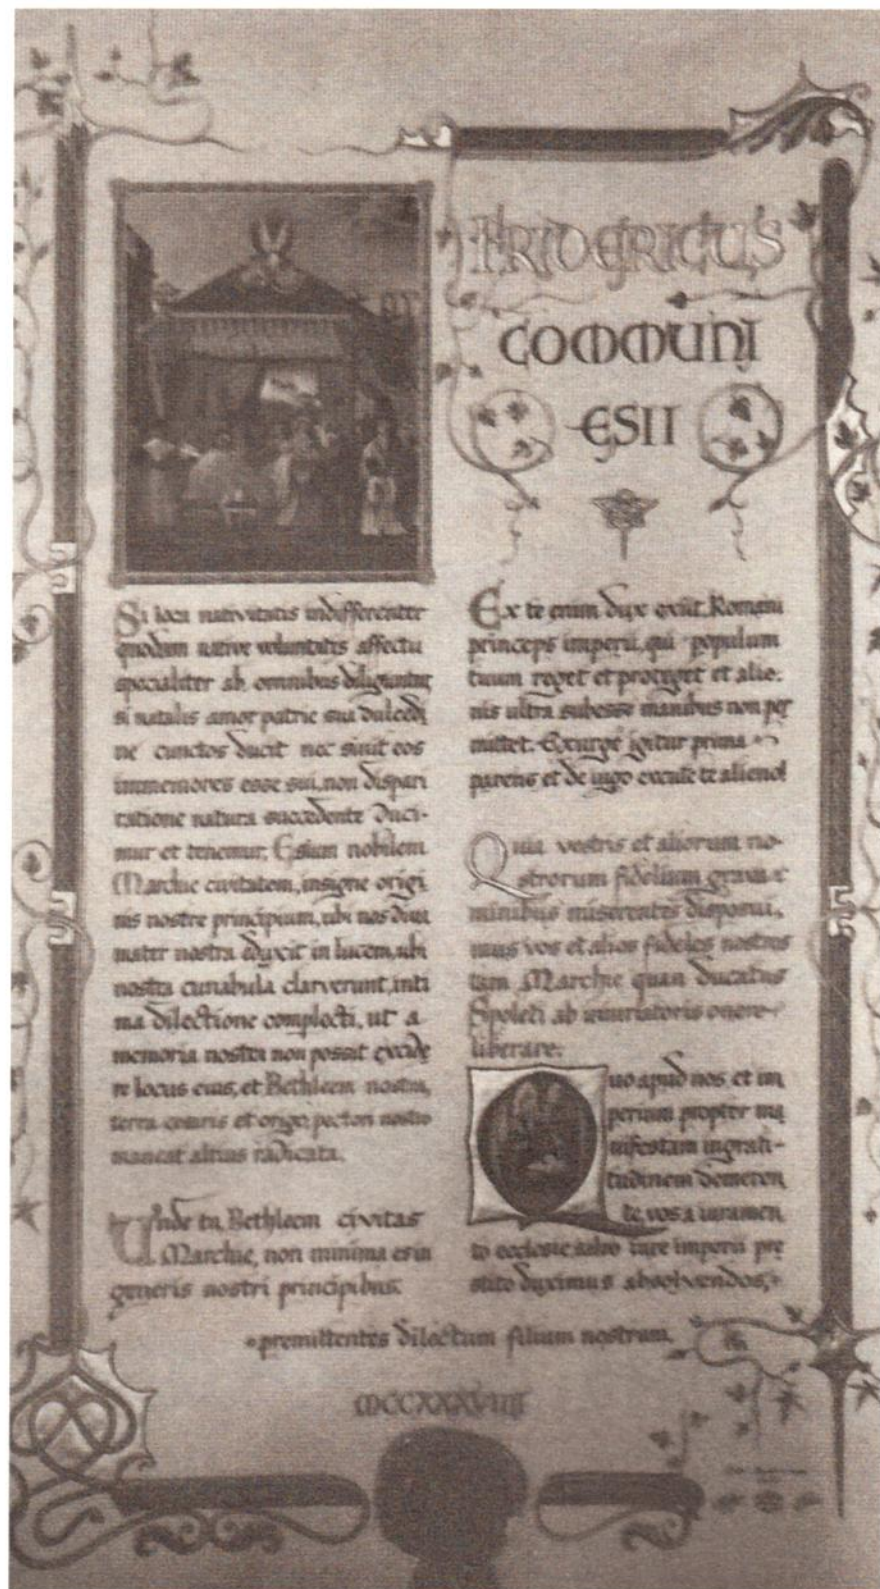 FRIDERICUS
COMMUNI
ESII
Si loca nativitatis indifferenter
quodam native voluntatis affectu
specialiter ab omnibus diliguntur,
si natalis amor patrie sua dulcedi
ne cunctos ducit nec sinit eos
immemores esse sui, non dispari
ratione natura succedente duci-
mur et tenemur, Esium nobilem
Marchie civitatem, insigne origi
nis nostre principium, ubi nos diva
mater nostra eduxit in lucem, ubi
nostra cunabula clarverunt, inti
ma dilectione complecti, ut a
memoria nostra non possit excide
re locus eius, et Bethleem nostra,
terra cesaris et origo, pectori nostro
maneat altius radicata.
Unde tu, Bethleem civitas
Marchie, non minima es in
generis nostri principibus.
Ex te enim dux exiit, Romani
princeps imperii, qui populum
tuum reget et proteget et alie-
nis ultra subesse manibus non per
mittet. Exurge igitur prima
parens et de iugo excute te alieno!
Quia vestris et aliorum no-
strorum fidelium grava
minibus miserentes disposui,
mus vos et alios fideles nostros
tam Marchie quan ducatus
Spoleti ab iniuriatoris onere
liberare.
Quo apud nos et im
perium propter ma
nifestam ingrati-
tudinem demeren
te, vos a iuramen
to ecclesie salvo iure imperii pre
stito duximus absolvendos,
premittentes dilectum filium nostrum.
MCCXXXVIIII